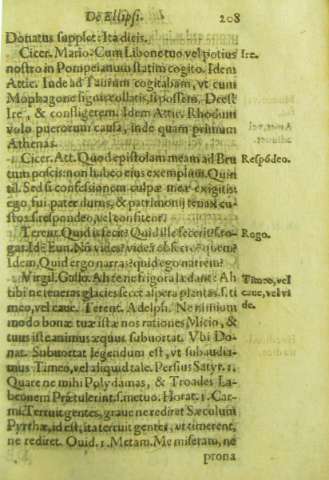 De Ellipsi. 208
Donatus supplet: Ita dieis.
Cicer. Mario: Cum Libone tuo vel potius Ire.
nostro in Pompeianum statim cogito. Idem
Attic. Inde ad Taurum cogitabam, vt cum
Mophagone signis collatis, si possem. Deest
Ire, & confligerem. Idem Attic. Rhodum
volo puerorum causa, inde quam primum
Athenas.
Cicer. Att. Quod epistolam meam ad Bru Respõdeo.
tum poscis: non habeo eius exemplum. Quin
til. Sed si confessionem culpæ meæ exigitis:
ego, fui pater durus, & patrimonij tenax cu-
stos: s. respondeo, vel confiteor.
Terent. Quid is fecit? Quid ille fecerit? s. ro- Rogo.
gat. Ide Eun. Nõ vides? vides obsecro? quem?
Idem, Quid ergo narras? quid ego narrem?
Virgil. Gallo. Ah te ne frigora lædant: Ah Timeo, vel
tibi ne teneras glacies secet aspera plantas. s. ti caue, vel vi
meo, vel caue. Terent. Adelph. Ne nimium de.
modo bonæ tuæ istæ nos rationes Micio, &
tuus iste animus æquus subuortat. Vbi Do-
nat. Subuortat legendum est, vt subaudia-
mus Timeo, vel aliquid tale. Persius Satyr. 1.
Quare ne mihi Polydamas, & Troades La-
beonem Prætulerint. s. metuo. Horat. 1. Car-
mi: Terruit gentes, graue ne rediret Sæculum
Pyrrhæ, id est, ita terruit gentes, vt timerent,
ne rediret. Ouid. 1. Metam. Me miseram, ne
prona